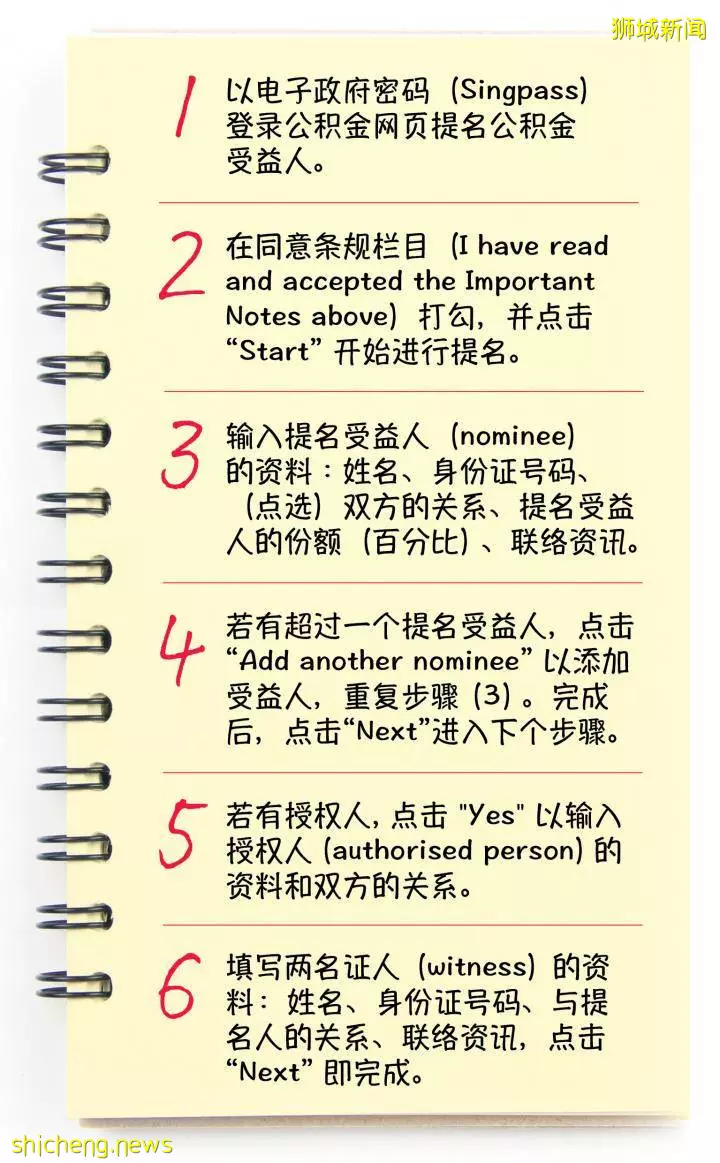 狮城新闻
1 以电子政府密码（Singpass）
登录公积金网页提名公积金
受益人。
2 在同意条规栏目（I have read
and accepted the Important
Notes above）打勾，并点击
“Start” 开始进行提名。
3 输入提名受益人（nominee）
的资料：姓名、身份证号码、
（点选）双方的关系、提名受益
人的份额（百分比）、联络资讯。
4 若有超过一个提名受益人，点击
“Add another nominee” 以添加
受益人，重复步骤 (3) 。完成
后，点击“Next”进入下个步骤。
5 若有授权人, 点击 "Yes" 以输入
授权人 (authorised person) 的
资料和双方的关系。
6 填写两名证人（witness）的资
料：姓名、身份证号码、与提
名人的关系、联络资讯，点击
“Next” 即完成。
shicheng.news